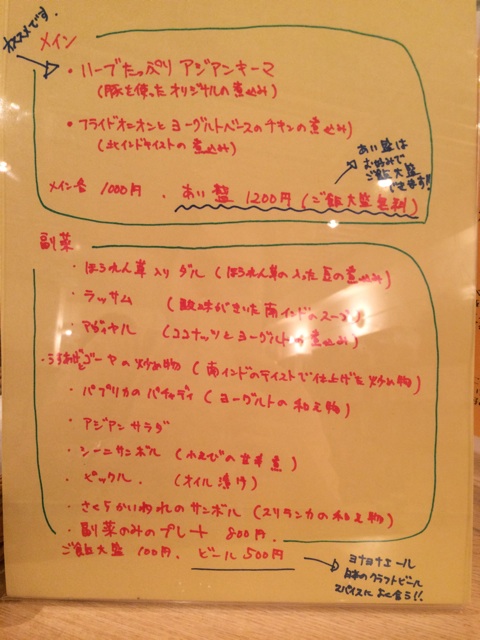 オススメです。
メイン
・ハーブたっぷり アジアンキーマ
(豚を使ったオリジナルの煮込み)
・フライドオニオンとヨーグルトベースのチキンの煮込み)
(北インドテイストの煮込み)
あい盛は
お好みで
ご飯大盛
できます!!
メイン各 1000円. あい盛 1200円 (ご飯大盛無料)
副菜
・ほうれん草入り ダル (ほうれん草の入った豆の煮込み)
・ラッサム (酸味がきいた南インドのスープ)
・アヴィヤル (ココナッツとヨーグルトの煮込み)
・うすあげとゴーヤの炒め物 (南インドのテイストで仕上げた炒め物)
・パプリカの パチャディ (ヨーグルトの和え物)
・アジアンサラダ
・シーニサンボル (小えびの甘辛煮)
・ピックル. (オイル漬け)
・さくらかいわれのサンボル (スリランカの和え物)
・副菜のみのプレート 800円.
ご飯大盛 100円. ビール 500円
ヨナヨナエール
日本のクラフトビール
スパイスによく合う!!